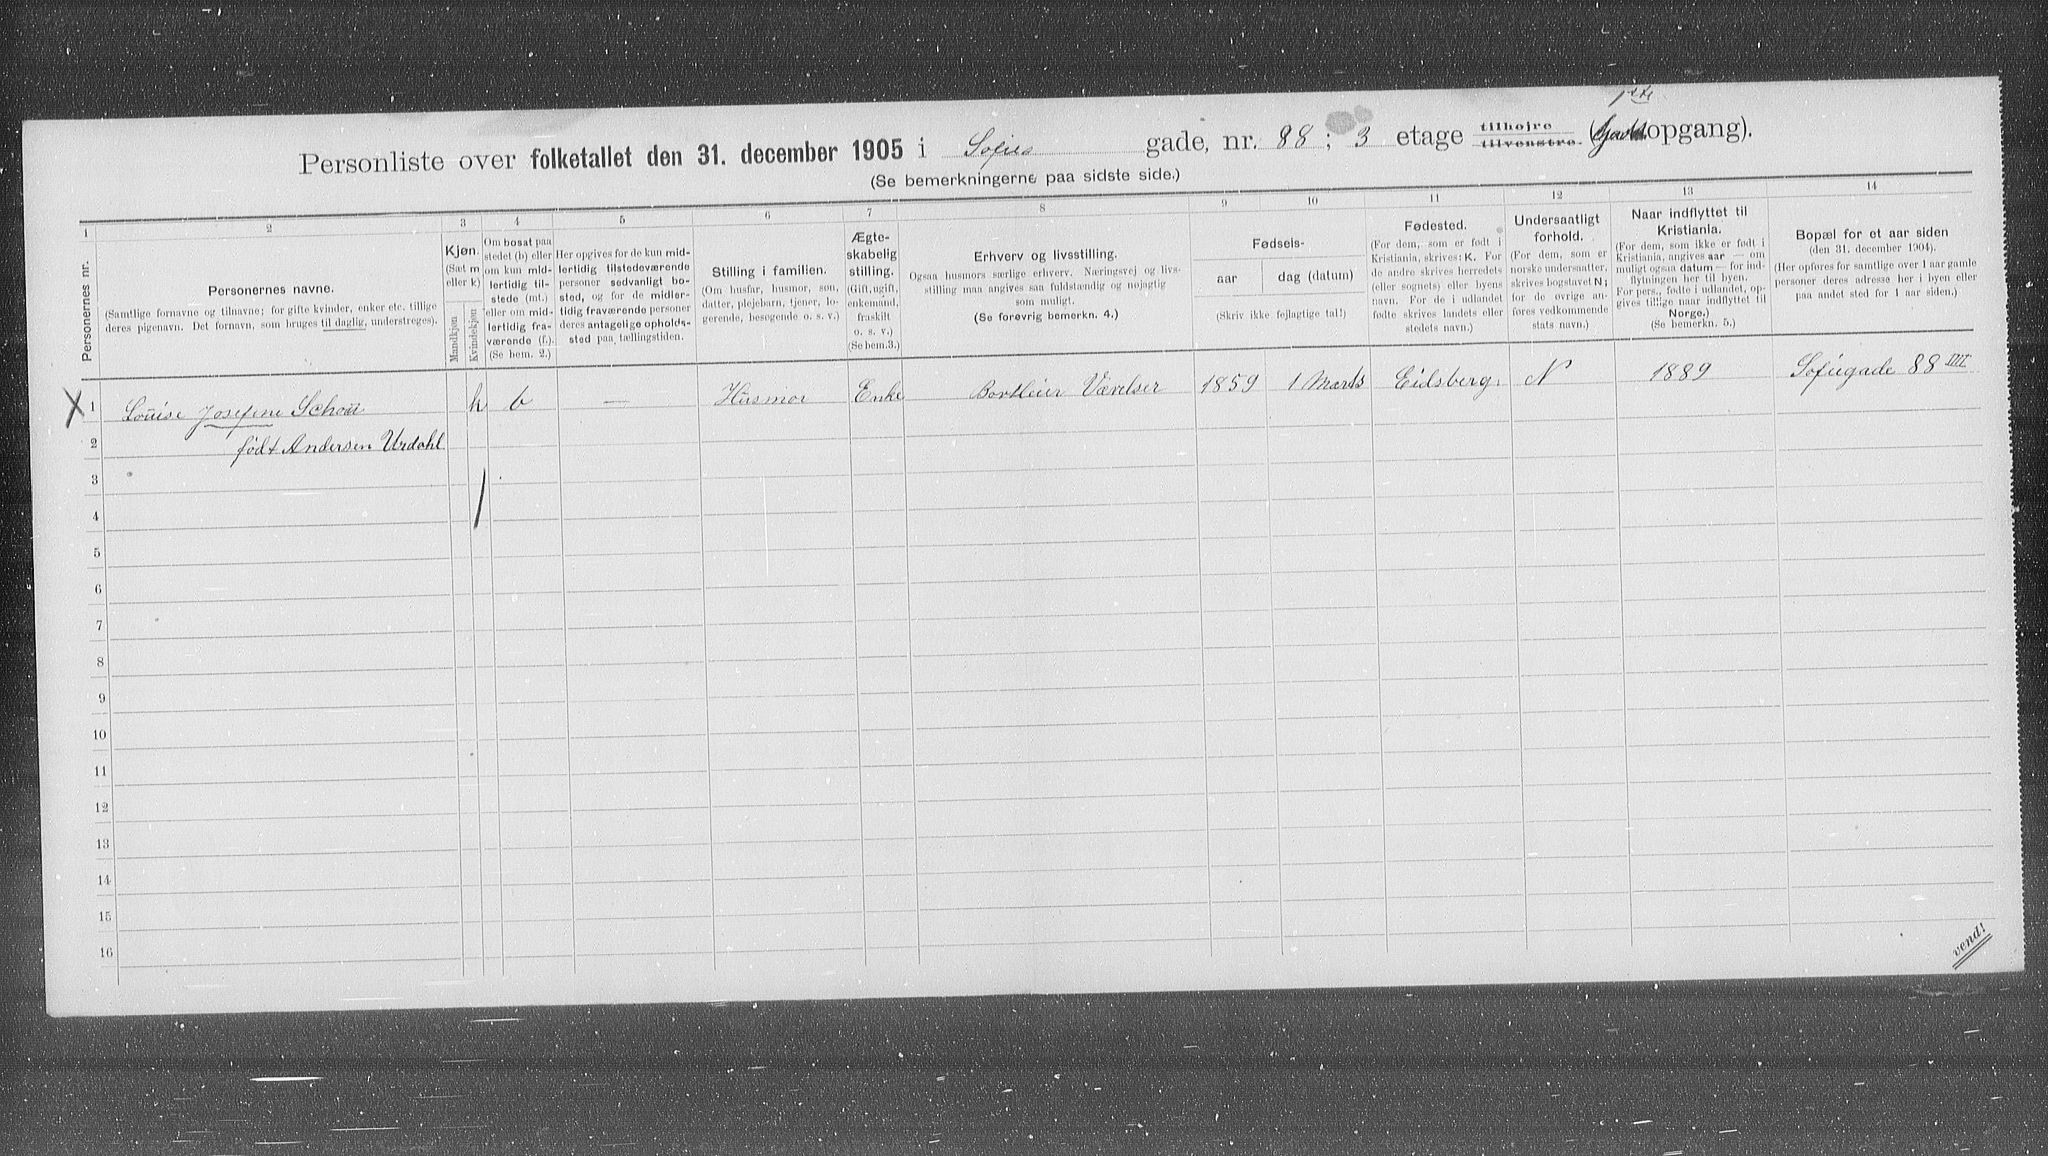 1ste
Personliste over folketallet den 31. december 1905 i Sofies gade, nr. 88 ; 3 etage tilhøjre tilvenstre. (opgang).
(Se bemerkningerne paa sidste side.)
1 2 3 4 5 6 7 8 9 10 11 12 13 14
Personernes nr.
Personernes navne.
(Samtlige fornavne og tilnavne; for gifte kvinder, enker etc. tillige
deres pigenavn. Det fornavn, som bruges til daglig, understreges).
Kjøn.
(Sæt m
eller k)
Mandkjøn
Kvindekjøn
Om bosat paa
stedet (b) eller
om kun mid-
lertidig til-
stede (mt.)
eller om mid-
lertidig fra-
værende (f.).
(Se bem. 2.)
Her opgives for de kun mid-
lertidig tilstedeværende
personer sedvanligt bo-
sted, og for de midler-
tidig fraværende personer
deres antagelige opholds-
sted paa tællingstiden.
Stilling i familien.
(Om husfar, husmor, søn,
datter, plejebarn, tjener, lo-
gerende, besøgende o. s. v.)
Ægte-
skabelig
stilling.
(Gift, ugift,
enkemand,
fraskilt
o. s. v.)
(Se bem.3.)
Erhverv og livsstilling.
Ogsaa husmors særlige erhverv. Næringsvej og livs-
stilling maa angives saa fuldstændig og nøjagtig
som muligt.
(Se forøvrig bemerkn. 4.)
Fødsels-
aar dag (datum)
(Skriv ikke fejlagtige tal!)
Fødested.
(For dem, som er født i
Kristiania, skrives: K. For
de andre skrives herredets
(eller sognets) eller byens
navn. For de i udlandet
fødte skrives landets eller
stedets navn.)
Undersaatligt
forhold.
(For dem, som er
norske undersaatter,
skrives bogstavet N;
for de øvrige an-
føres vedkommende
stats navn.)
Naar indflyttet til
Kristiania.
(For dem, som ikke er født i
Kristiania, angives aar — om
muligt ogsaa datum — for ind-
flytningen her til byen.
For pers., fødte i udlandet, op-
gives tillige naar indflyttet til
Norge.)
(Se bemerkn. 5.)
Bopæl for et aar siden
(den 31. december 1904).
(Her opføres for samtlige over 1 aar gamle
personer deres adresse her i byen eller
paa andet sted for 1 aar siden.)
X 1 Louise Josefine Schou k b — Husmor Enke Bortleier Værelser 1859 1 Marts Eidsberg. N 1889 Sofiegade 88 IIII
2 født Andersen Urdahl
3
4
5
6
7
8
9
10
11
12
13
14
15
16
vend!